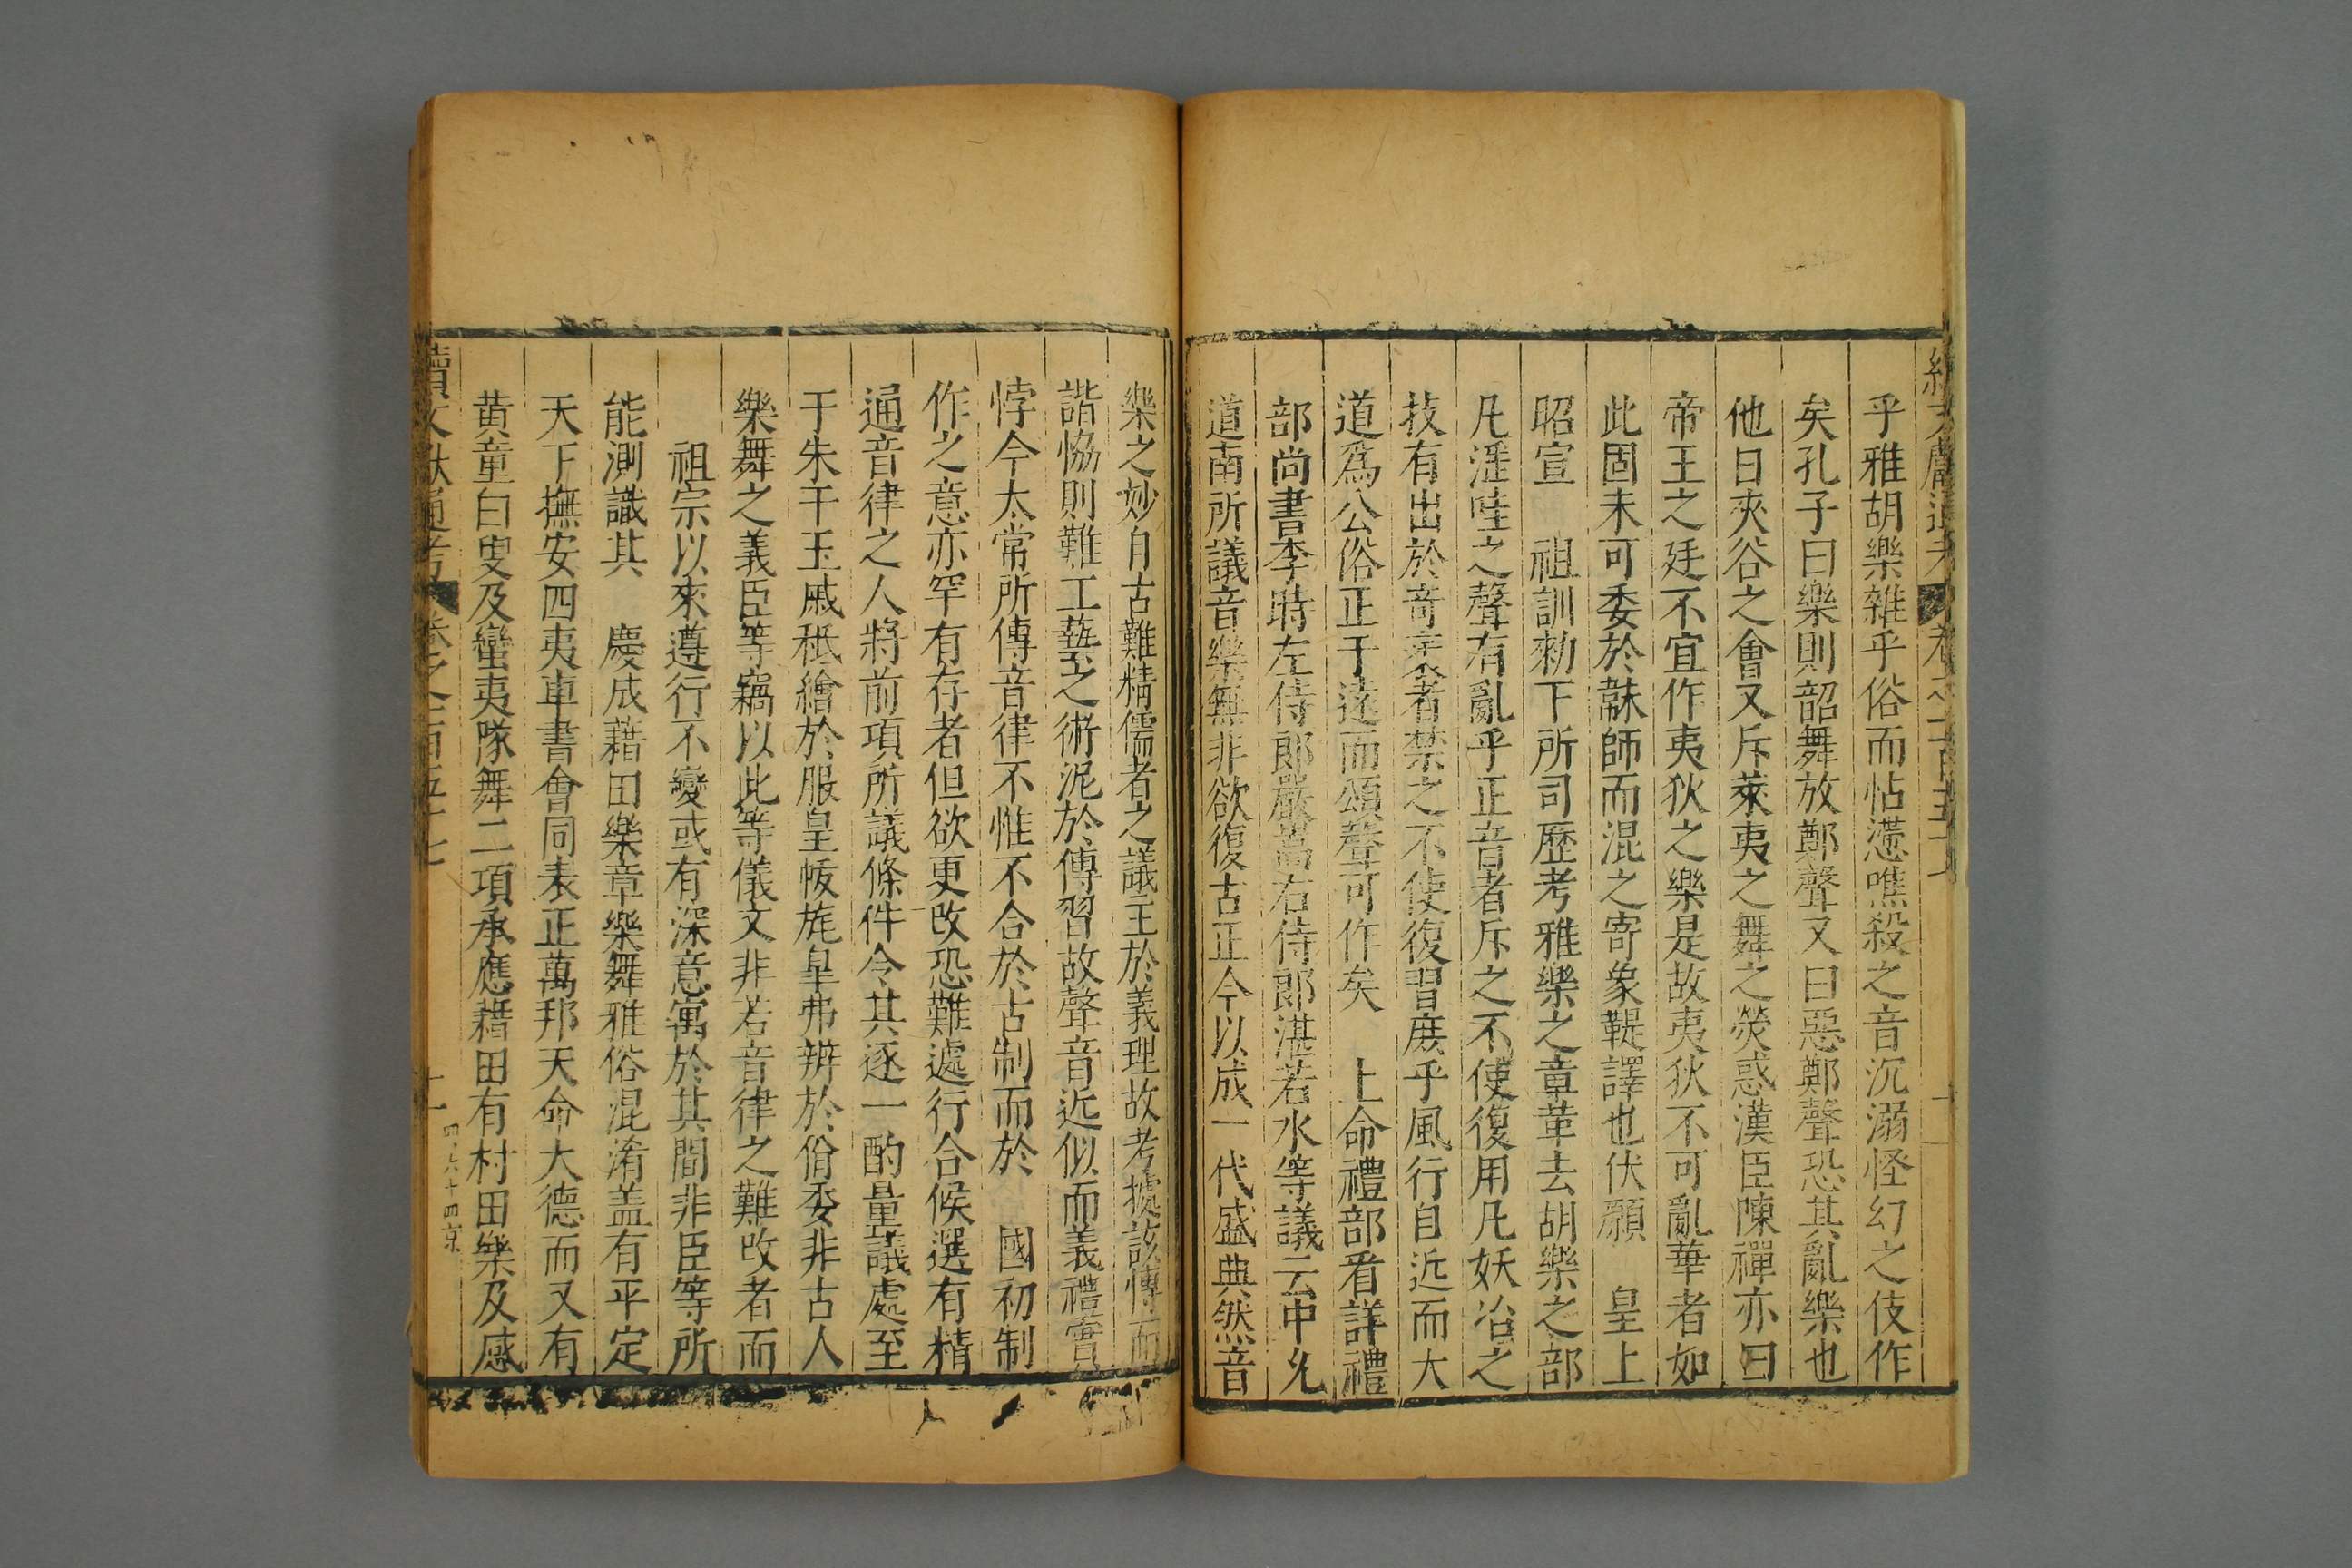 乎雅胡樂雜乎俗而怗懘噍殺之音沉溺怪幻之伎作
矣孔子曰樂則韶舞放鄭聲又曰惡鄭聲恐其亂樂也
他日夾谷之會又斥萊夷之舞之熒惑漢臣陳禪亦曰
帝王之廷不宜作夷狄之樂是故夷狄不可亂華者如
此固未可委於韎師而混之寄象鞮譯也伏願　皇上
昭宣　祖訓勑下所司歷考雅樂之章革去胡樂之部
凡淫哇之聲有亂乎正音者斥之不使復用凡妖冶之
技有出於竒衺者禁之不使復習庶乎風行自近而大
道爲公俗正于遠而頌聲可作矣　上命禮部看詳禮
部尚書李時左侍郎嚴嵩右侍郎湛若水等議云中允
道南所議音樂無非欲復古正今以成一代盛典然音
樂之妙自古難精儒者之議主於義理故考據該博而
諧恊則難工藝之術泥於傳習故聲音近似而義禮實
悖今太常所傳音律不惟不合於古制而於　國初制
作之意亦罕有存者但欲更改恐難遽行合候選有精
通音律之人將前項所議條件令其逐一酌量議處至
于朱干玉戚秪繪於服皇帗旄皐弗辨於佾委非古人
樂舞之義臣等竊以此等儀文非若音律之難改者而
祖宗以來遵行不變或有深意寓於其間非臣等所
能測識其　慶成藉田樂章樂舞雅俗混淆盖有平定
天下撫安四夷車書會同表正萬邦天命大德而又有
黄童白叟及蠻夷隊舞二項承應藉田有村田樂及感
續文獻通考　卷之一百五十七